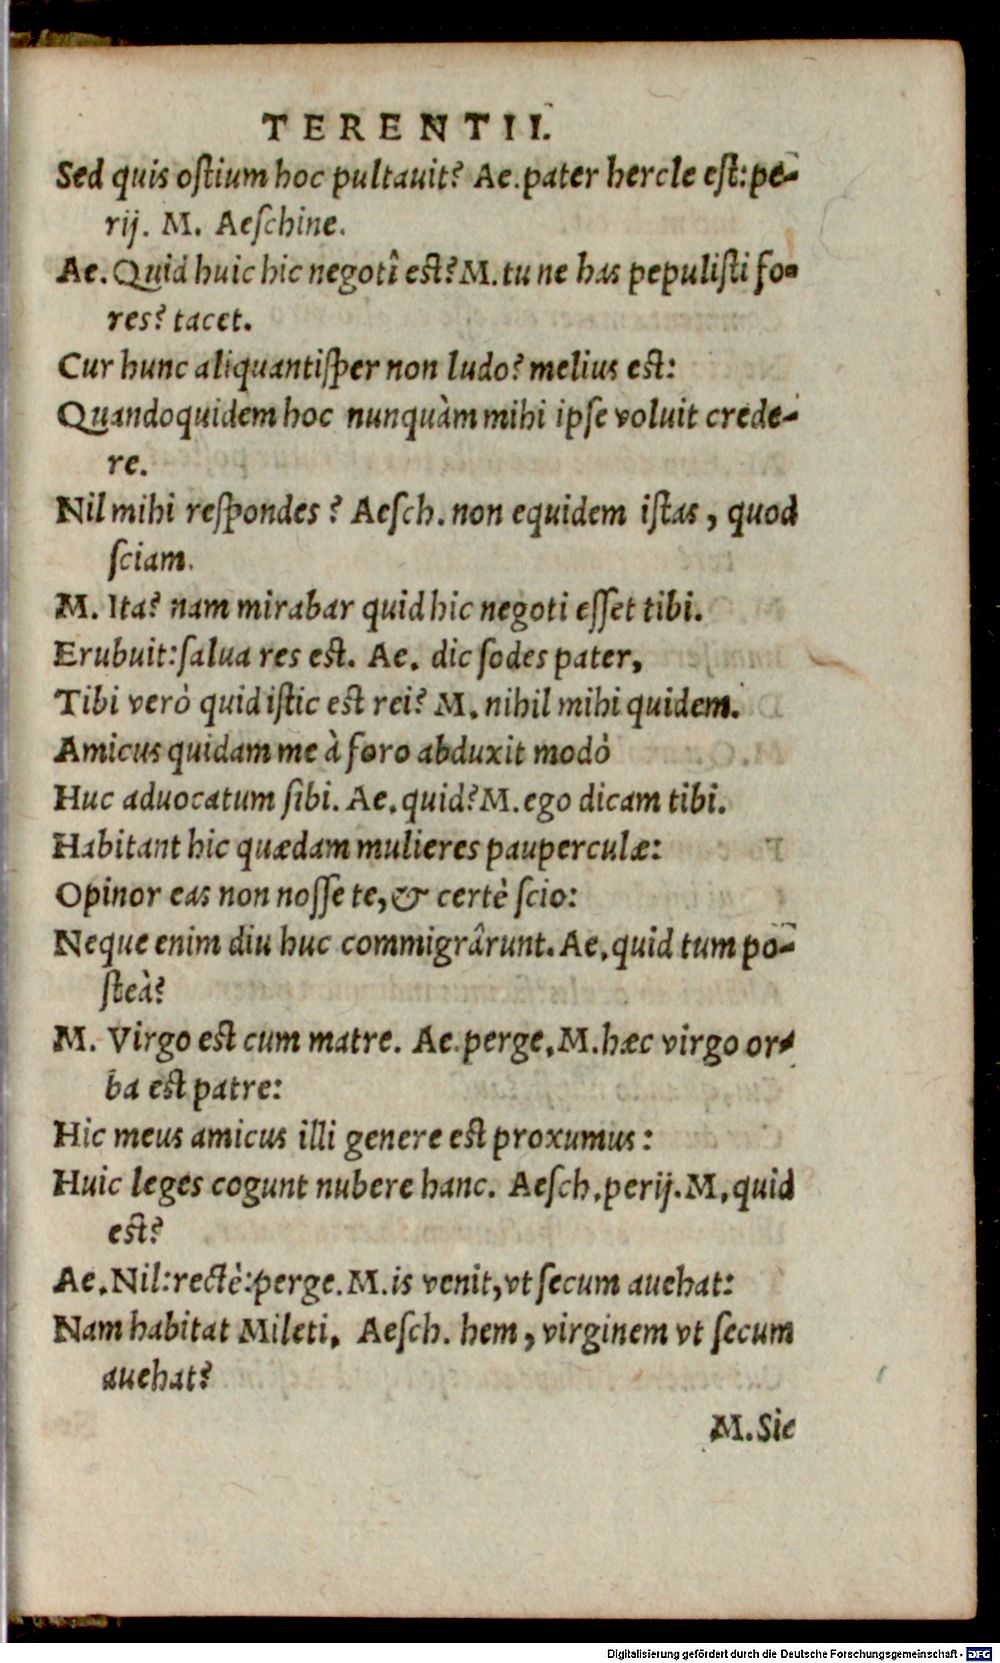 TERENTII.
Sed quis ostium hoc pultauit? Ae. pater hercle est: pe-
rij. M. Aeschine.
Ae. Quid huic hic negotî est? M. tu ne has pepulisti fo-
res? tacet.
Cur hunc aliquantisper non ludo? melius est:
Quandoquidem hoc nunquàm mihi ipse voluit crede-
re.
Nil mihi respondes? Aesch. non equidem istas, quod
sciam.
M. Ita? nam mirabar quid hic negoti esset tibi.
Erubuit: salua res est. Ae. dic sodes pater,
Tibi verò quid istic est rei? M. nihil mihi quidem.
Amicus quidam me à foro abduxit modò
Huc aduocatum sibi. Ae. quid? M. ego dicam tibi.
Habitant hic quædam mulieres pauperculæ:
Opinor eas non nosse te, & certè scio:
Neque enim diu huc commigrârunt. Ae. quid tum po-
steà?
M. Virgo est cum matre. Ae. perge. M. hæc virgo or-
ba est patre:
Hic meus amicus illi genere est proxumus:
Huic leges cogunt nubere hanc. Aesch. perij. M. quid
est?
Ae. Nil: rectè: perge. M. is venit, vt secum auehat:
Nam habitat Mileti. Aesch. hem, virginem vt secum
auehat?
M. Sic
Digitalisierung gefördert durch die Deutsche Forschungsgemeinschaft - DFG